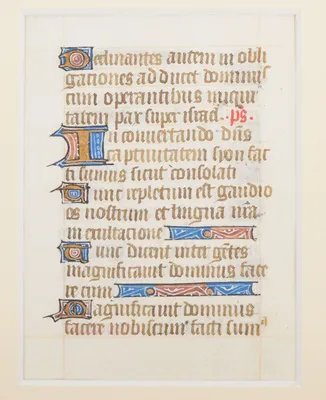 Declinantes autem in obli
gationes adducet dominus
cum operantibus iniqui
tatem pax super israel. ps.
In convertendo dñs
captivitatem syon fac
ti sumus sicut consolati
Tunc repletum est gaudio
os nostrum et lingua nr̃a
in exultatione
Tunc dicent inter gẽtes
magnificavit dominus face
re cum
Magnificavit dominus
facere nobiscum facti sum